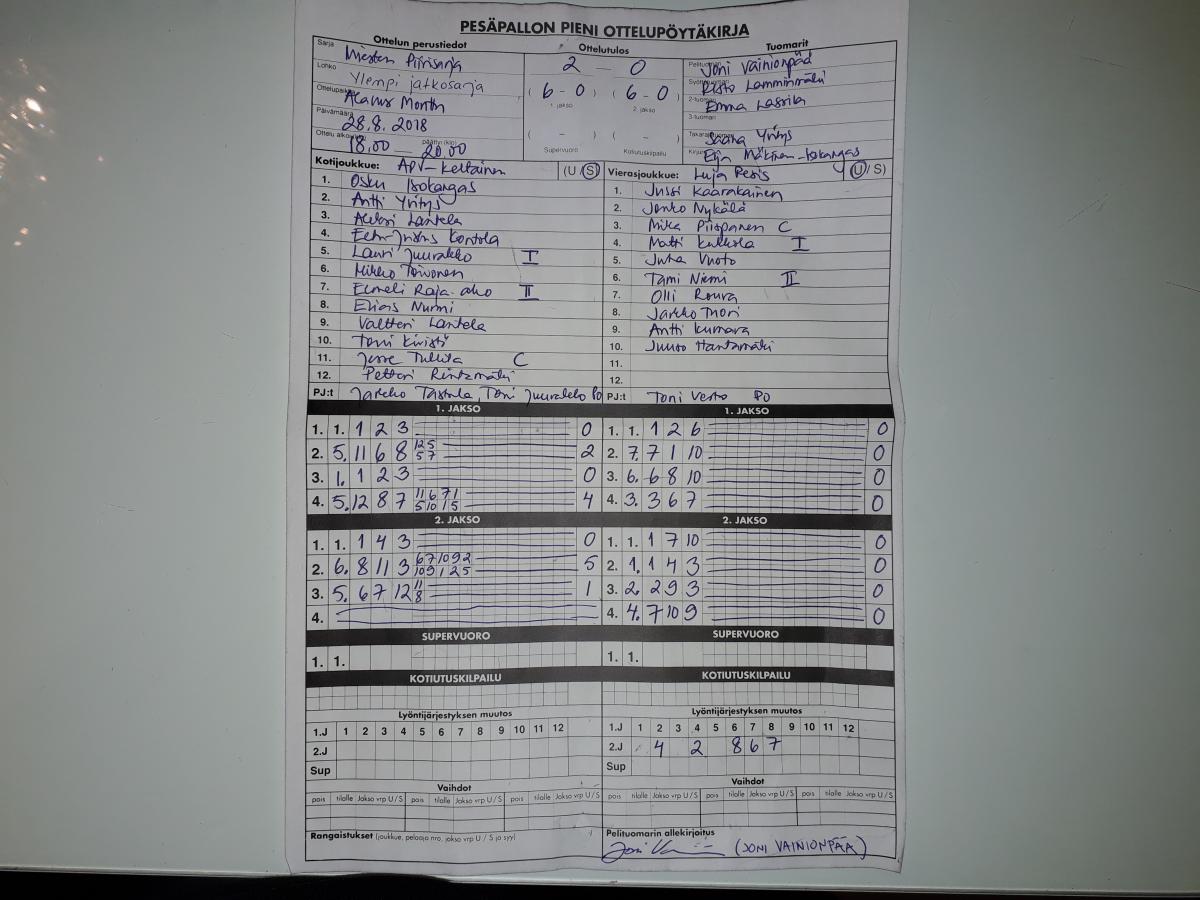 PESÄPALLON PIENI OTTELUPÖYTÄKIRJA
Ottelun perustiedot Ottelutulos Tuomarit
Sarja Miesten Piirisarja 2 - 0 Pelituomari Joni Vainionpää
Lohko Ylempi jatkosarja Risto Lamminmäki
Ottelupaikka Alavus (6-0) (6-0) 2-tuomari Emma
1. jakso 2. jakso
Päivämäärä 28.8.2018 3-tuomari
Ottelu alkoi (klo) 18.00 päättyi (klo) 20.00 ( - ) ( - ) Saana Yritys
Supervuoro Kotiutuskilpailu Eija Mäkinen-Isokangas
Kotijoukkue: APV-Keltainen (U/S) Vierasjoukkue: Luja Pesis (U/S)
1. Osku Isokangas 1. Jussi Kaarakainen
2. Antti Yritys 2. Jonko Nykälä
3. Aleksi Lantela 3. Mika Piispanen C
4. Kontola 4. Matti Kukkola I
5. Lauri Juurakko I 5. Juha Vuoto
6. Mikko Toivonen 6. Tami Niemi II
7. Eemeli Raja-aho II 7. Olli Roura
8. Elias Nurmi 8. Jarkko
9. Valtteri Lantela 9. Antti Kumara
10. Toni Kivistö 10. Juuso Hantamäki
11. Jesse C 11.
12. Petteri Rintamäki 12.
PJ:t Jarkko Tastula, Toni Juurakko PO PJ:t Toni Verto PO
1. JAKSO 1. JAKSO
1. 1. 1 2 3 0 1. 1. 1 2 6 0
2. 5. 11 6 8 12 5 5 7 2 2. 7. 7 1 10 0
3. 1. 1 2 3 0 3. 6. 6 8 10 0
4. 5. 12 8 7 11 6 7 1 5 10 1 5 4 4. 3. 3 6 7 0
2. JAKSO 2. JAKSO
1. 1. 1 4 3 0 1. 1. 1 7 10 0
2. 6. 8 11 3 6 7 10 9 2 10 9 1 2 5 5 2. 1. 1 4 3 0
3. 5. 6 7 12 11 8 1 3. 2. 2 9 3 0
4. 4. 4. 7 10 9 0
SUPERVUORO SUPERVUORO
1. 1. 1. 1.
KOTIUTUSKILPAILU KOTIUTUSKILPAILU
Lyöntijärjestyksen muutos Lyöntijärjestyksen muutos
1.J 1 2 3 4 5 6 7 8 9 10 11 12 1.J 1 2 3 4 5 6 7 8 9 10 11 12
2.J 2.J 4 2 8 6 7
Sup Sup
Vaihdot Vaihdot
pois tilalle Jakso vrp U/S pois tilalle Jakso vrp U/S pois tilalle Jakso vrp U/S pois tilalle Jakso vrp U/S pois tilalle Jakso vrp U/S pois tilalle Jakso vrp U/S
Rangaistukset (joukkue, pelaaja nro, jakso vrp U / S ja syy) Pelituomarin allekirjoitus
(JONI VAINIONPÄÄ)